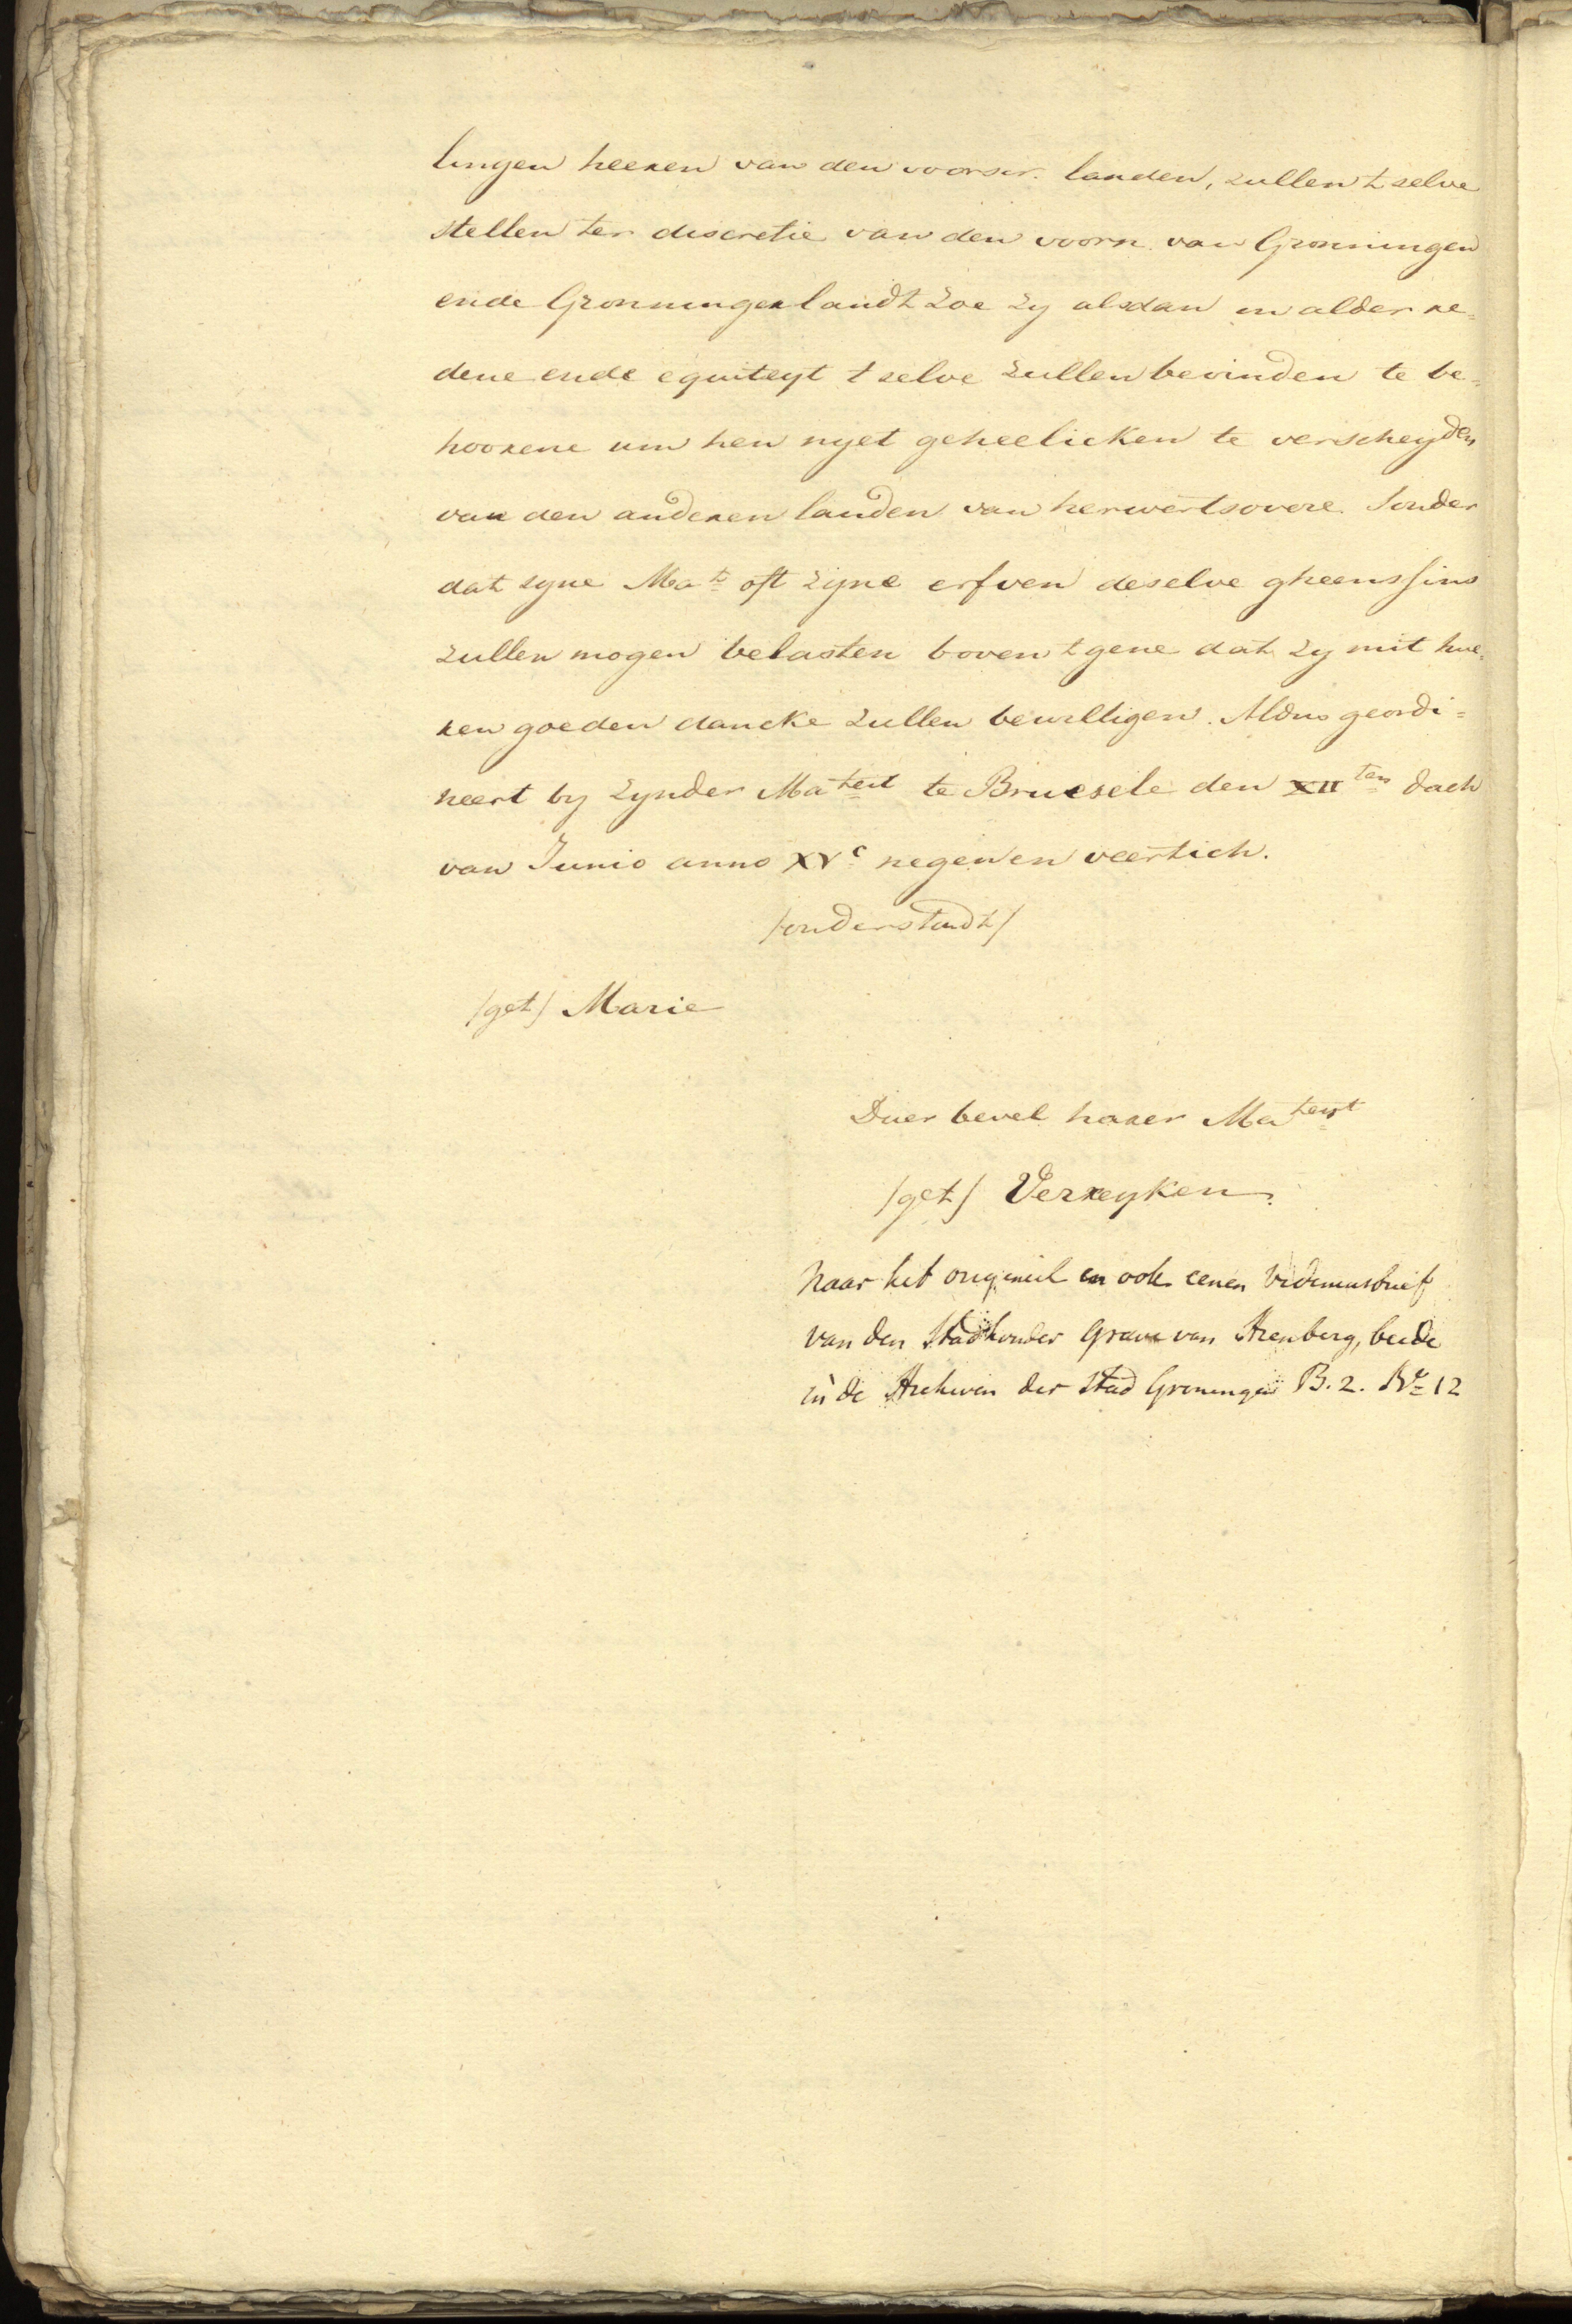 lingen heeren van den voorscr. landen, zullen t selve
stellen ter discretie van den voorn. van Gronningen
ende Gronningerlandt zoe zy alsdan in alder re=
dene ende equiteyt t selve zullen bevinden te be=
hoorene um hen nyet geheelicken te verscheyden
van den anderen landen van herwertsovere. Sonder
dat syne Ma.t oft zijne erfven deselve gheenssins
zullen mogen belasten boven t gene dat zy mit hue=
ren goeden dancke zullen bewilligen. Aldus geordi=
neert by zynder Mateit te Bruesele den XIIten dach
van Junio anno XVc negenen veertich.
/onderstadt/
/get/ Marie
Duer bevel harer Mateyt
/get/ Verreyken.
Naar het origineel en ook eenen Vidimusbrief
van den Stadhouder Grave van Arenberg, beide
in de Archiven der Stad Groningen B. 2. No 12